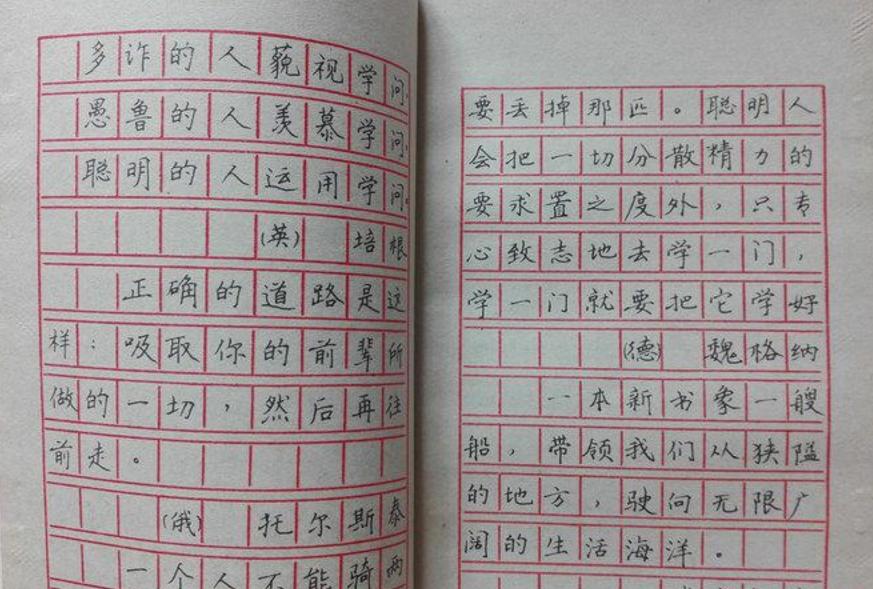 多诈的人藐视学问,
愚鲁的人羡慕学问,
聪明的人运用学问。
(英) 培根
正确的道路是这
样:吸取你的前辈所
做的一切,然后再往
前走。
(俄) 托尔斯泰
一个人不能骑两
要丢掉那匹。聪明人
会把一切分散精力的
要求置之度外,只专
心致志地去学一门,
学一门就要把它学好
(德) 魏格纳
一本新书象一艘
船,带领我们从狭隘
的地方,驶向无限广
阔的生活海洋。